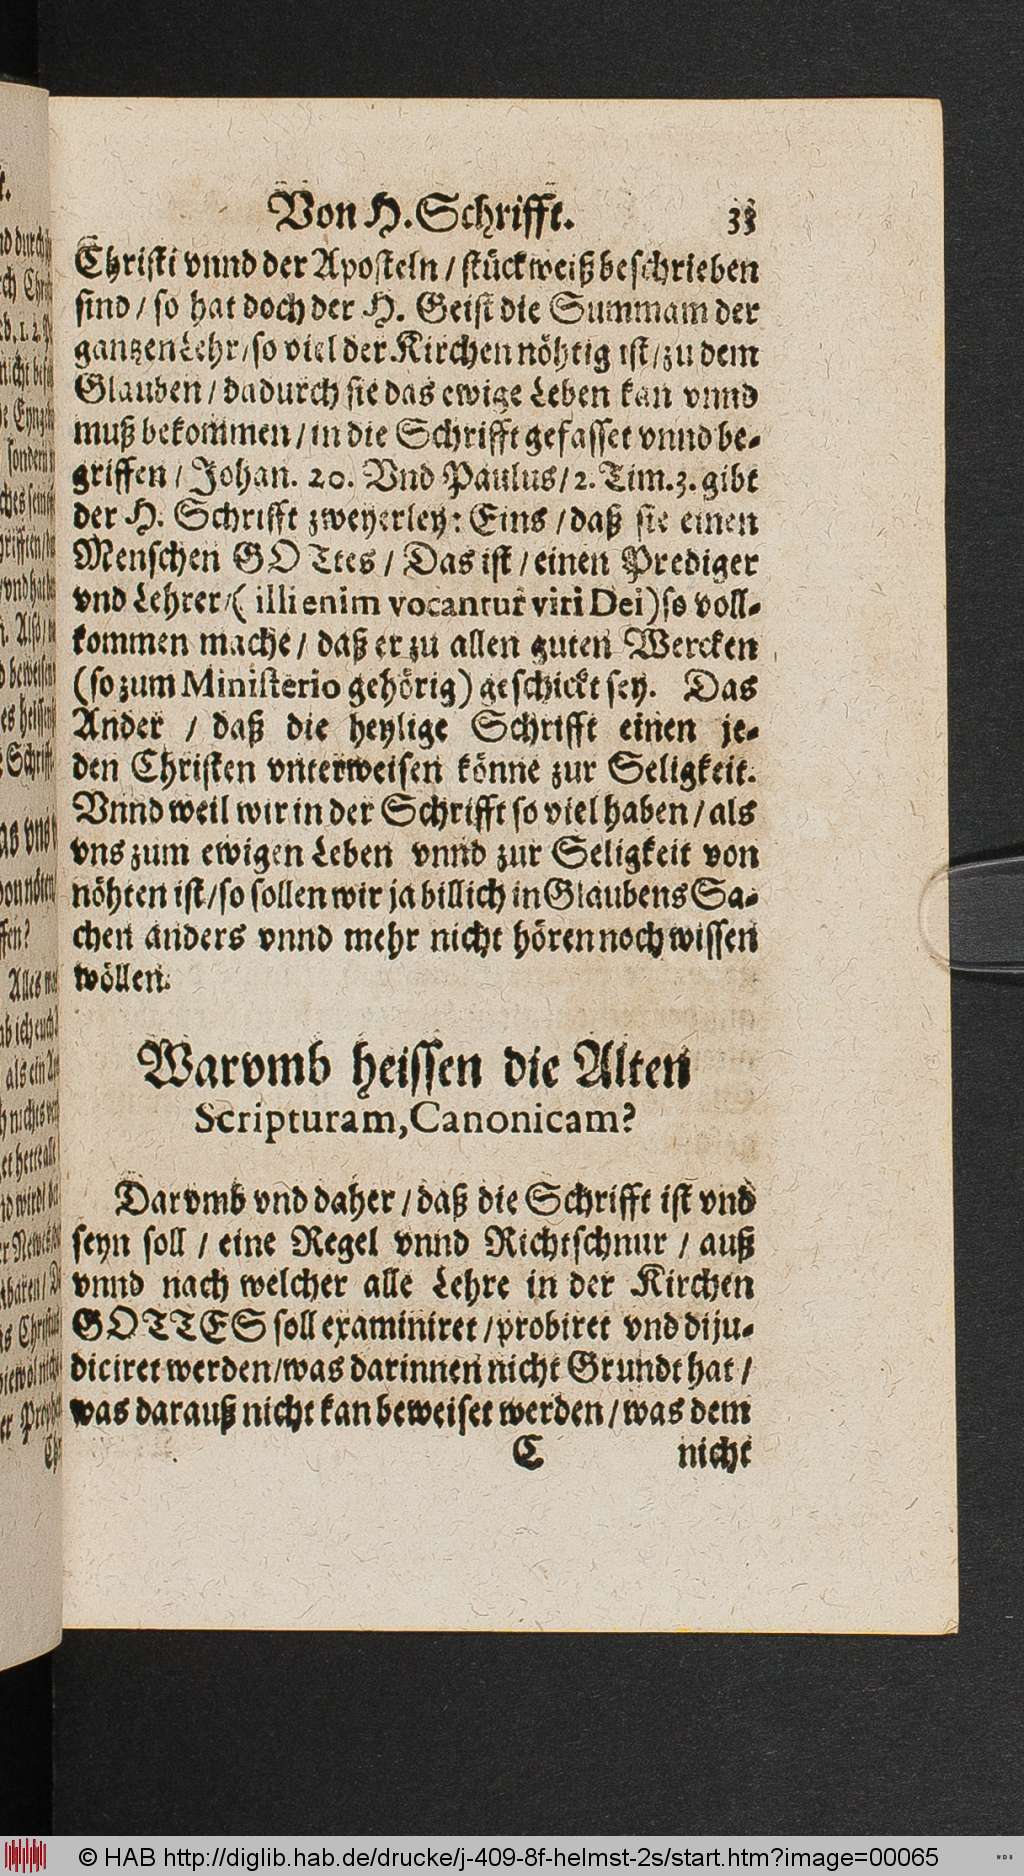 Von H. Schrifft. 33
Christi vnnd der Aposteln / stückweiß beschrieben
sind / so hat doch der H. Geist die Summam der
gantzen Lehr / so viel der Kirchen nöhtig ist / zu dem
Glauben / dadurch sie das ewige Leben kan vnnd
muß bekommen / in die Schrifft gefasset vnnd be-
griffen / Johan. 20. Vnd Paulus / 2. Tim. 3. gibt
der H. Schrifft zweyerley: Eins / daß sie einen
Menschen GOTtes / Das ist / einen Prediger
vnd Lehrer / ( illi enim vocantur viri Dei ) so voll-
kommen mache / daß er zu allen guten Wercken
(so zum Ministerio gehörig) geschickt sey. Das
Ander / daß die heylige Schrifft einen je-
den Christen vnterweisen könne zur Seligkeit.
Vnnd weil wir in der Schrifft so viel haben / als
vns zum ewigen Leben vnnd zur Seligkeit von
nöhten ist / so sollen wir ja billich in Glaubens Sa-
chen anders vnnd mehr nicht hören noch wissen
wöllen.
Warvmb heissen die Alten
Scripturam, Canonicam?
Darvmb vnd daher / daß die Schrifft ist vnd
seyn soll / eine Regel vnnd Richtschnur / auß
vnnd nach welcher alle Lehre in der Kirchen
GOTTES soll examiniret / probiret vnd diju-
diciret werden / was darinnen nicht Grundt hat /
was darauß nicht kan beweiset werden / was dem
C nicht
© HAB http://diglib.hab.de/drucke/j-409-8f-helmst-2s/start.htm?image=00065